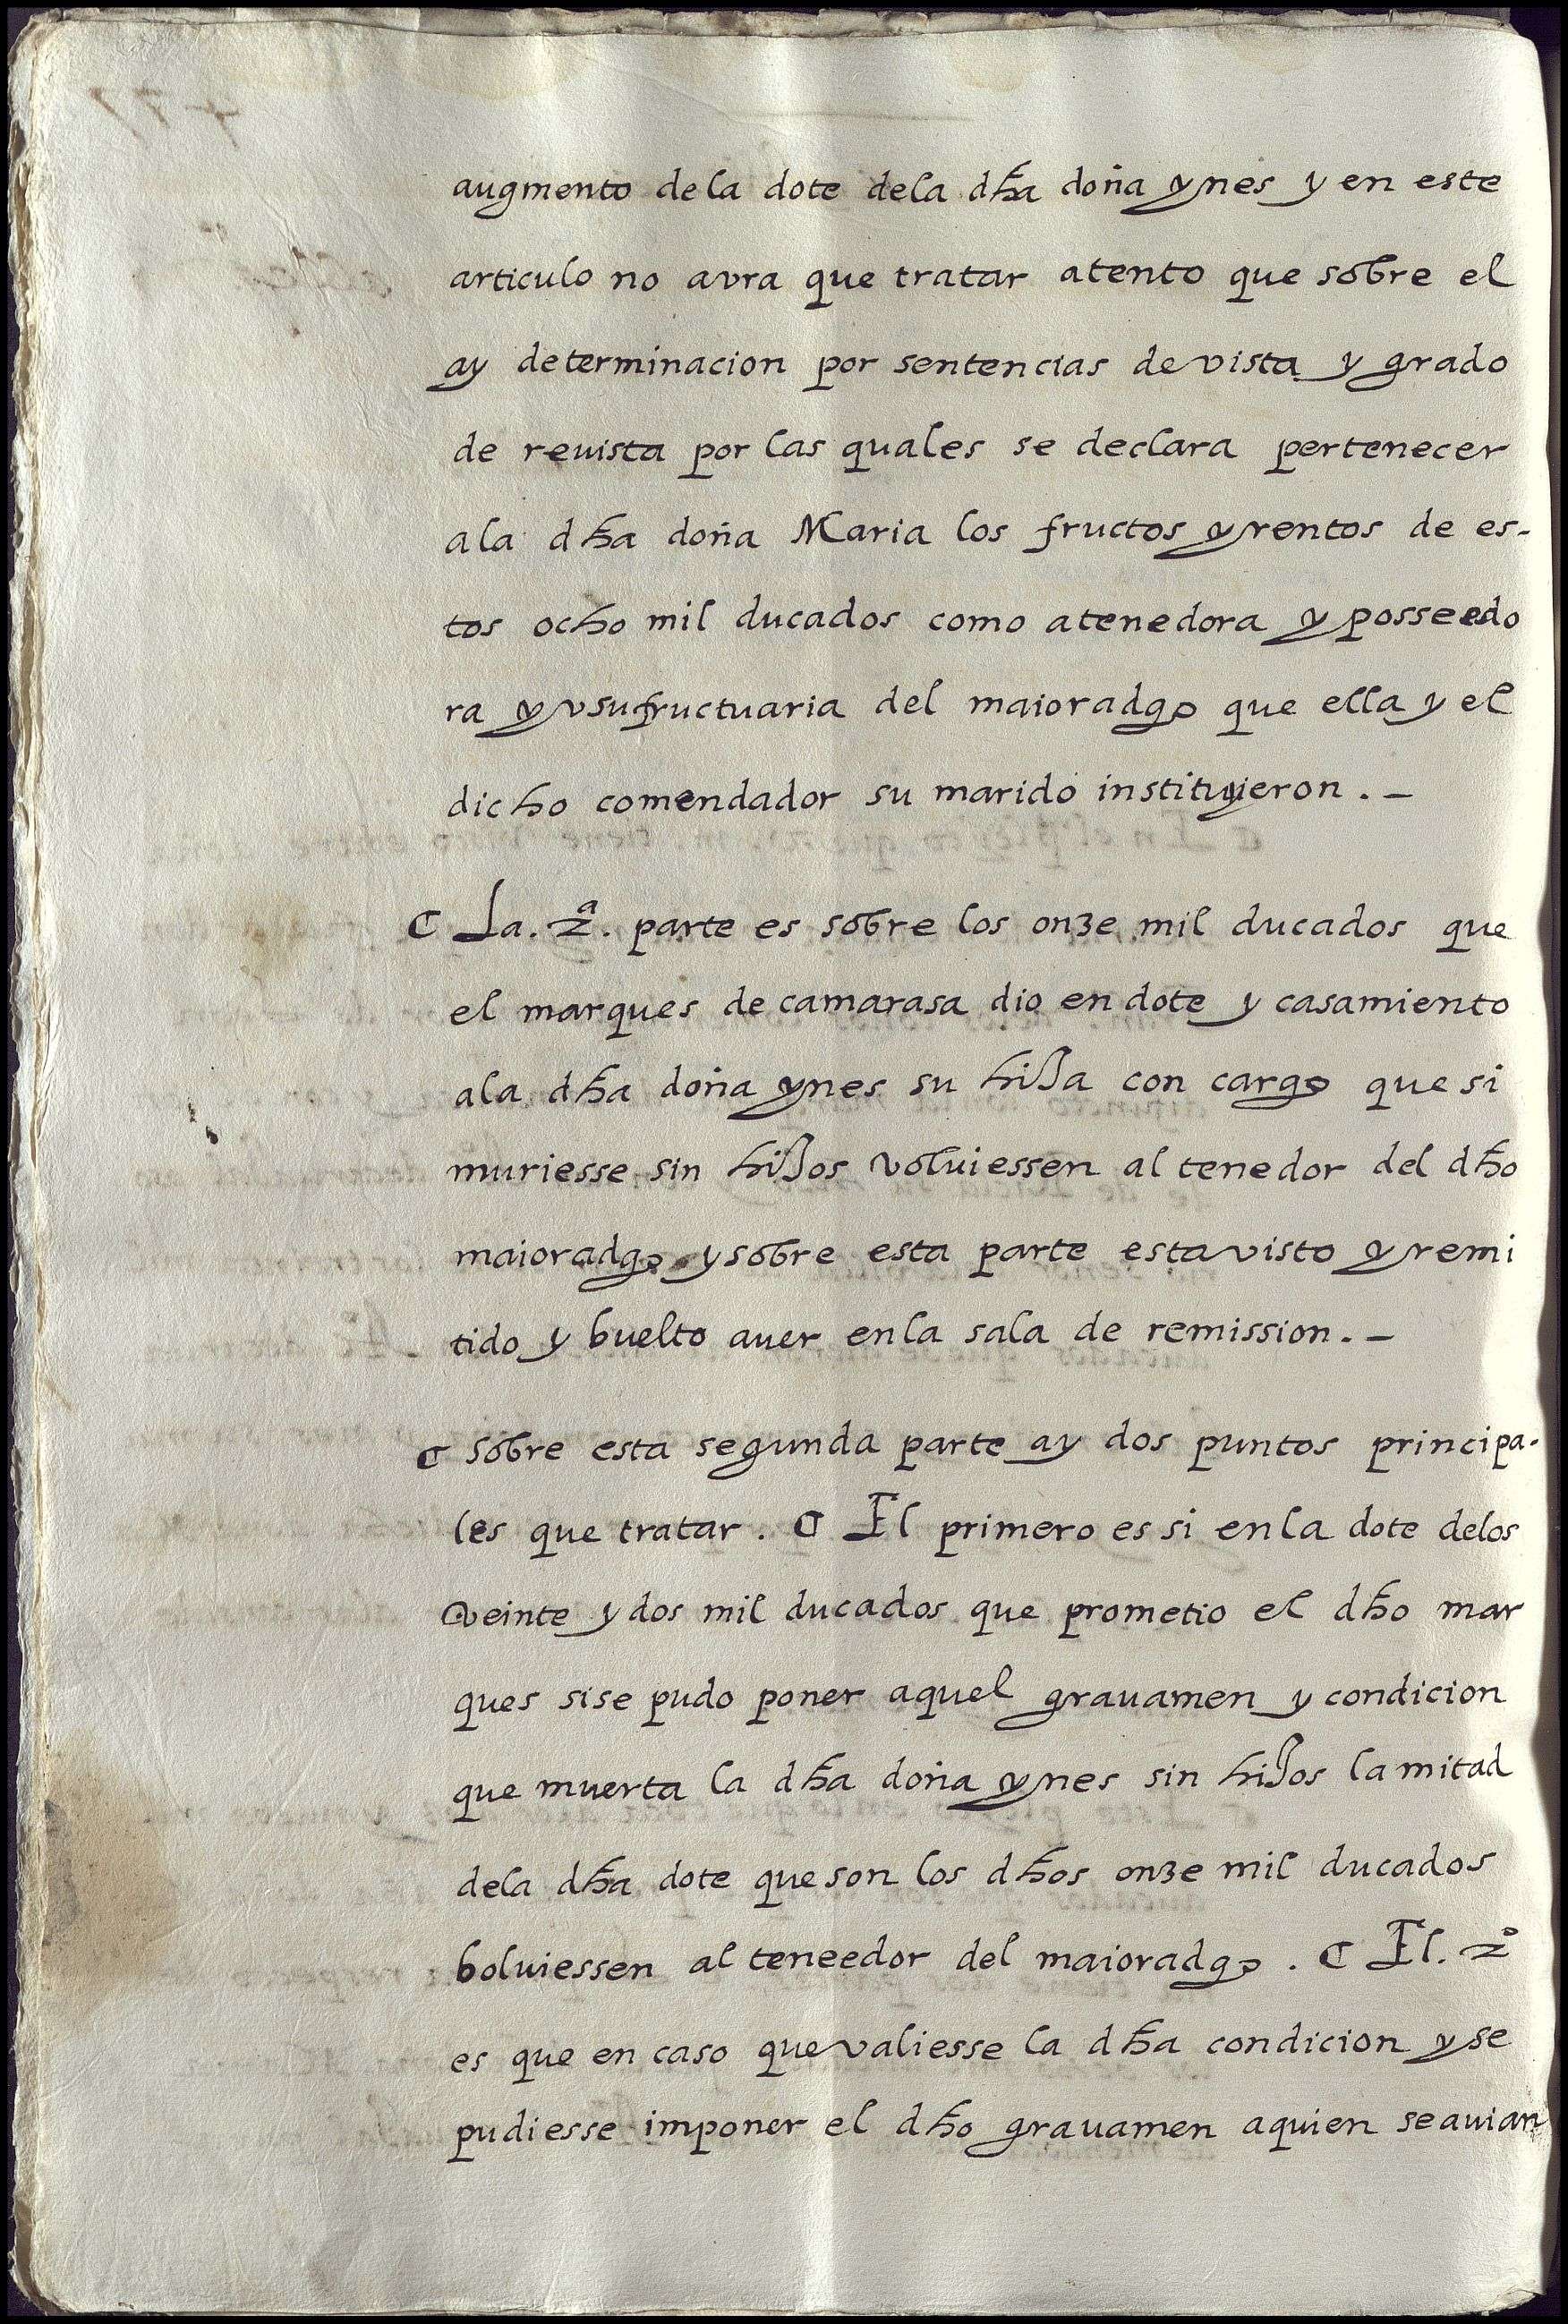 augmento dela dote dela dha doña ynes y en este
articulo no avra que tratar atento que sobre el
ay determinacion por sentencias de vista y grado
de reuista por las quales se declara pertenecer
ala dha doña Maria los fructos y rentos de es-
tos ocho mil ducados como atenedora y posseedo
ra y vsufructuaria del maioradgo que ella y el
dicho comendador su marido instituyeron . –
¶ La . 2ª . parte es sobre los onze mil ducados que
el marques de camarasa dio en dote y casamiento
ala dha doña ynes su hija con cargo que si
muriesse sin hijos voluiessen al tenedor del dho
maioradgo y sobre esta parte esta visto y remi
tido y buelto auer enla sala de remission . –
¶ sobre esta segunda parte ay dos puntos principa-
les que tratar . ¶ El primero es si enla dote delos
veinte y dos mil ducados que prometio el dho mar
ques sise pudo poner aquel grauamen y condicion
que muerta la dha doña ynes sin hijos la mitad
dela dha dote que son los dhos onze mil ducados
boluiessen al teneedor del maioradgo . ¶ El . 2º
es que en caso que valiesse la dha condicion y se
pudiesse imponer el dho grauamen aquien seauian